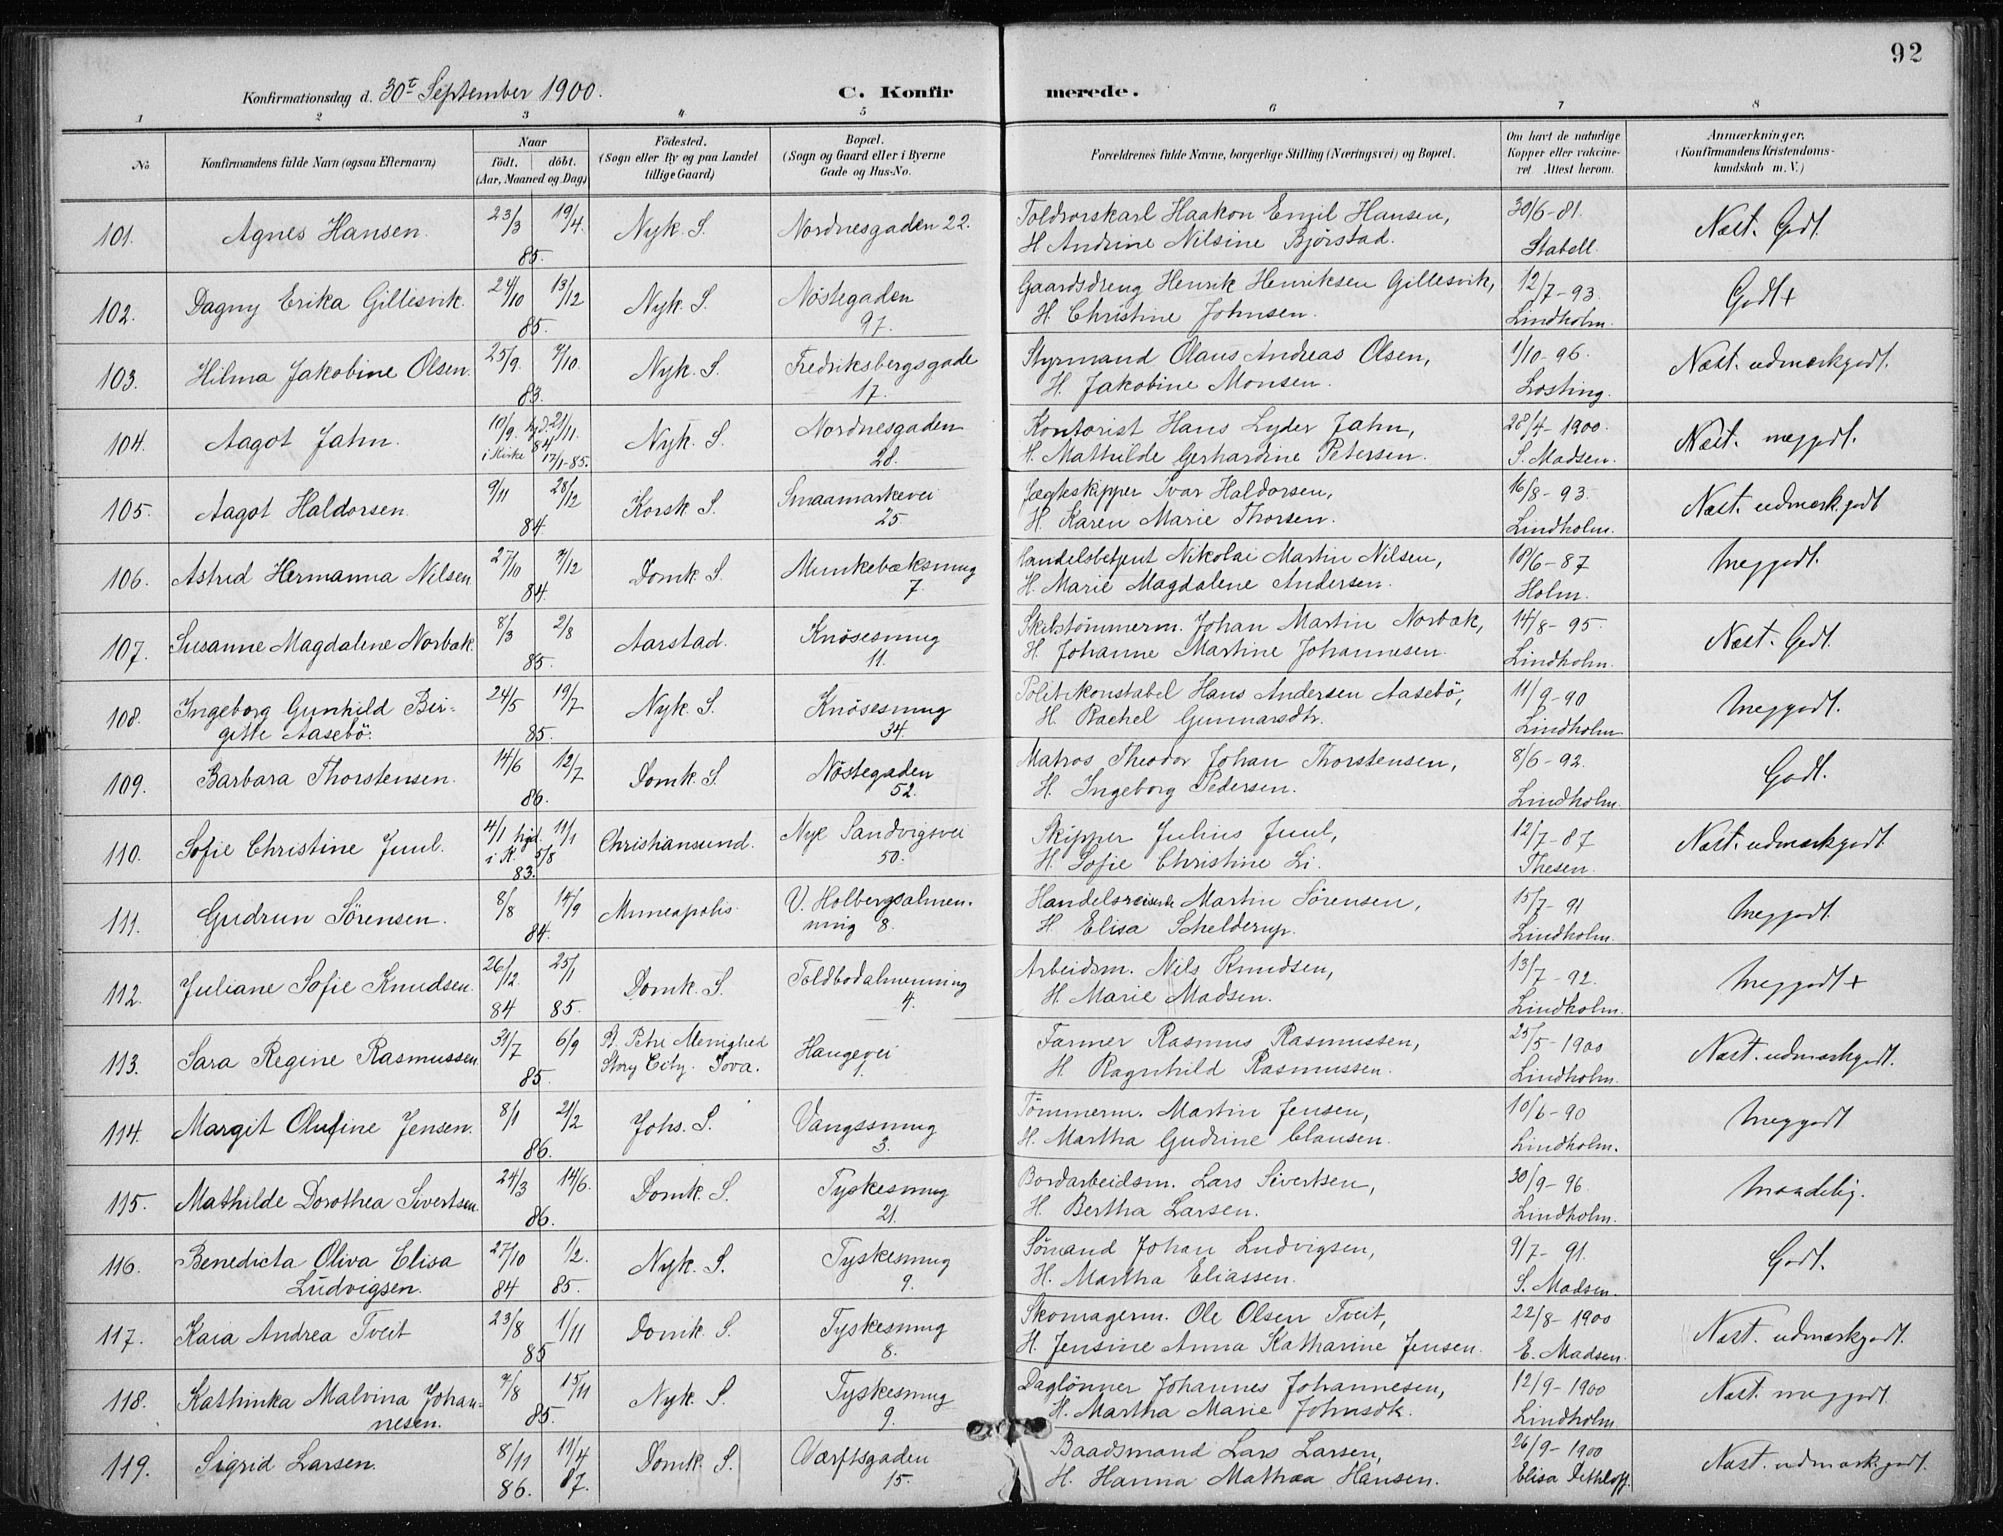 92
Konfirmationsdag d. 30t September 1900. C. Konfirmerede.
1 2 3 4 5 6 7 8
No. Konfirmandens fulde Navn (ogsaa Efternavn) Naar født, døbt. (Aar, Maaned og Dag) Fødested. (Sogn eller By og paa Landet tillige Gaard) Bopæl. (Sogn og Gaard eller i Byerne Gade og Hus-No. Forældrenes fulde Navne, borgerlige Stilling (Næringsvei) og Bopæl. Om havt de naturlige Kopper eller vakcineret. Attest herom. Anmærkninger, (Konfirmandens Kristendomskundskab m. V.)
101. Agnes Hansen. 23/3 19/4. 85. Nyk. S. Nordnesgaden 22. Toldrorskarl Haakon Emil Hansen, 30/6-81. Næst. Godt.
H. Andrine Nilsine Bjørstad. Stabell.
102. Dagny Erika Gillesvik. 24/10 13/12 85. Nyk. S. Nöstegaden 97. Gaardsdreng Henrik Henriksen Gillesvik, 12/7-93. Godt+
H. Christine Johnsen. Lindholm.
103. Hilma Jakobine Olsen. 25/9. 7/10. 83. Nyk. S. Fredriksbergsgade 17. Styrmand Olaus Andreas Olsen, 1/10-96. Næst. udmærkgodt.
H. Jakobine Monsen. Losting.
104. Aagot Jahn. 10/9. hjd. 21/11. 84 i Kirke 17/1-85. Nyk. S. Nordnesgaden 28. Kontorist Hans Lyder Jahn, 28/4-1900. Næst. megodt.
H. Mathilde Gerhardine Petersen. S. Madsen.
105. Aagot Haldorsen. 9/11 28/12 84. Korsk. S. Smaamarkevei 25 Jægteskipper Ivar Haldorsen, 16/8-93. Næst. udmærk.godt
H. Karen Marie Thorsen. Lindholm.
106. Astrid Hermanna Nilsen 27/10 7/12 84. Domk. S. Munkebæksmug 7. Handelsbetjent Nikolai Martin Nilsen, 18/6-87 Megodt.
H. Marie Magdalene Andersen. Holm.
107. Susanne Magdalene Norbak. 8/3 2/8 85. Aarstad. Knösesmug 11. Skibstømmerm. Johan Martin Norbak, 14/8-95. Næst. Godt.
H. Johanne Martine Johannesen. Lindholm.
108. Ingeborg Gunhild Bir- 24/5 19/7 85. Nyk. S. Knösesmug 34. Politikonstabel Hans Andersen Aasebö, 11/9-90 Megodt.
gitte Aasebö. H. Rachel Gunnarsdtr. Lindholm
109. Barbara Thorstensen. 14/6 12/7 86. Domk. S. Nöstegaden 52. Matros Theodor Johan Thorstensen, 8/6-92. Godt.
H. Ingeborg Pedersen. Lindholm.
110. Sofie Christine Juul. 4/1 hjd 11/1 i K. 5/8 83. Christiansund. Nye Sandvigsvei 50. Skipper Julius Juul, 12/7-87 Næst. udmærkgodt
H. Sofie Christine Li. Thesen.
111. Gudrun Sørensen. 8/8 14/9 84. Minneapolis V. Holbergsalmen- Handelsreisende Martin Sörensen, 15/7-91 Megodt.
ning 8. H. Elisa Schelderup. Lindholm.
112. Juliane Sofie Knudsen. 26/12. 25/1 84 85. Domk. S. Toldbodalmenning 4. Arbeidsm. Nils Knudsen, 13/7-92. Megodt+
H. Marie Madsen. Lindholm.
113. Sara Regine Rasmussen 31/7 6/9 85. St. Petri Menighed Haugevei 1 Farmer Rasmus Rasmussen, 25/5-1900 Næst. udmærkgodt.
Story City. Iova. H. Ragnhild Rasmussen. Lindholm.
114. Margit Olufine Jensen. 8/1 21/2 86. Johs. S. Vangssmug 3. Tömmerm. Martin Jensen, 10/6-90 Megodt
H. Martha Gudrine Clausen. Lindholm.
115. Mathilde Dorothea Sivertsen. 24/3 14/6. 86. Domk. S. Tyskesmug 21. Bordarbeidsm. Lars Sivertsen, 30/9-96. Maadelig.
H. Bertha Larsen. Lindholm.
116. Benedicta Oliva Elisa 27/10 1/2. 84 85. Nyk. S. Tyskesmug 9. Sömand Johan Ludvigsen, 9/7-91. Godt.
Ludvigsen. H. Martha Eliassen. S. Madsen.
117. Kaia Andrea Tveit 23/8 1/11 85 Domk. S. Tyskesmug 8. Skomagerm. Ole Olsen Tveit, 22/8-1900 Næst. udmærkgodt.
H. Jensine Anna Katharine Jensen. E. Madsen.
118. Kathinka Malvina Johan- 7/8 15/11 85. Nyk. S. Tyskesmug 9. Daglönner Johannes Johannesen, 12/9-1900 Næst. megodt.
nesen. H. Martha Marie Johnsdt. Lindholm.
119. Sigrid Larsen. 8/11 11/4 86. 87. Domk. S. Værftsgaden 15. Baadsmand Lars Larsen, 26/9-1900 Næst. udmærkgodt.
H. Hanna Mathea Hansen. Elisa Dethloff.